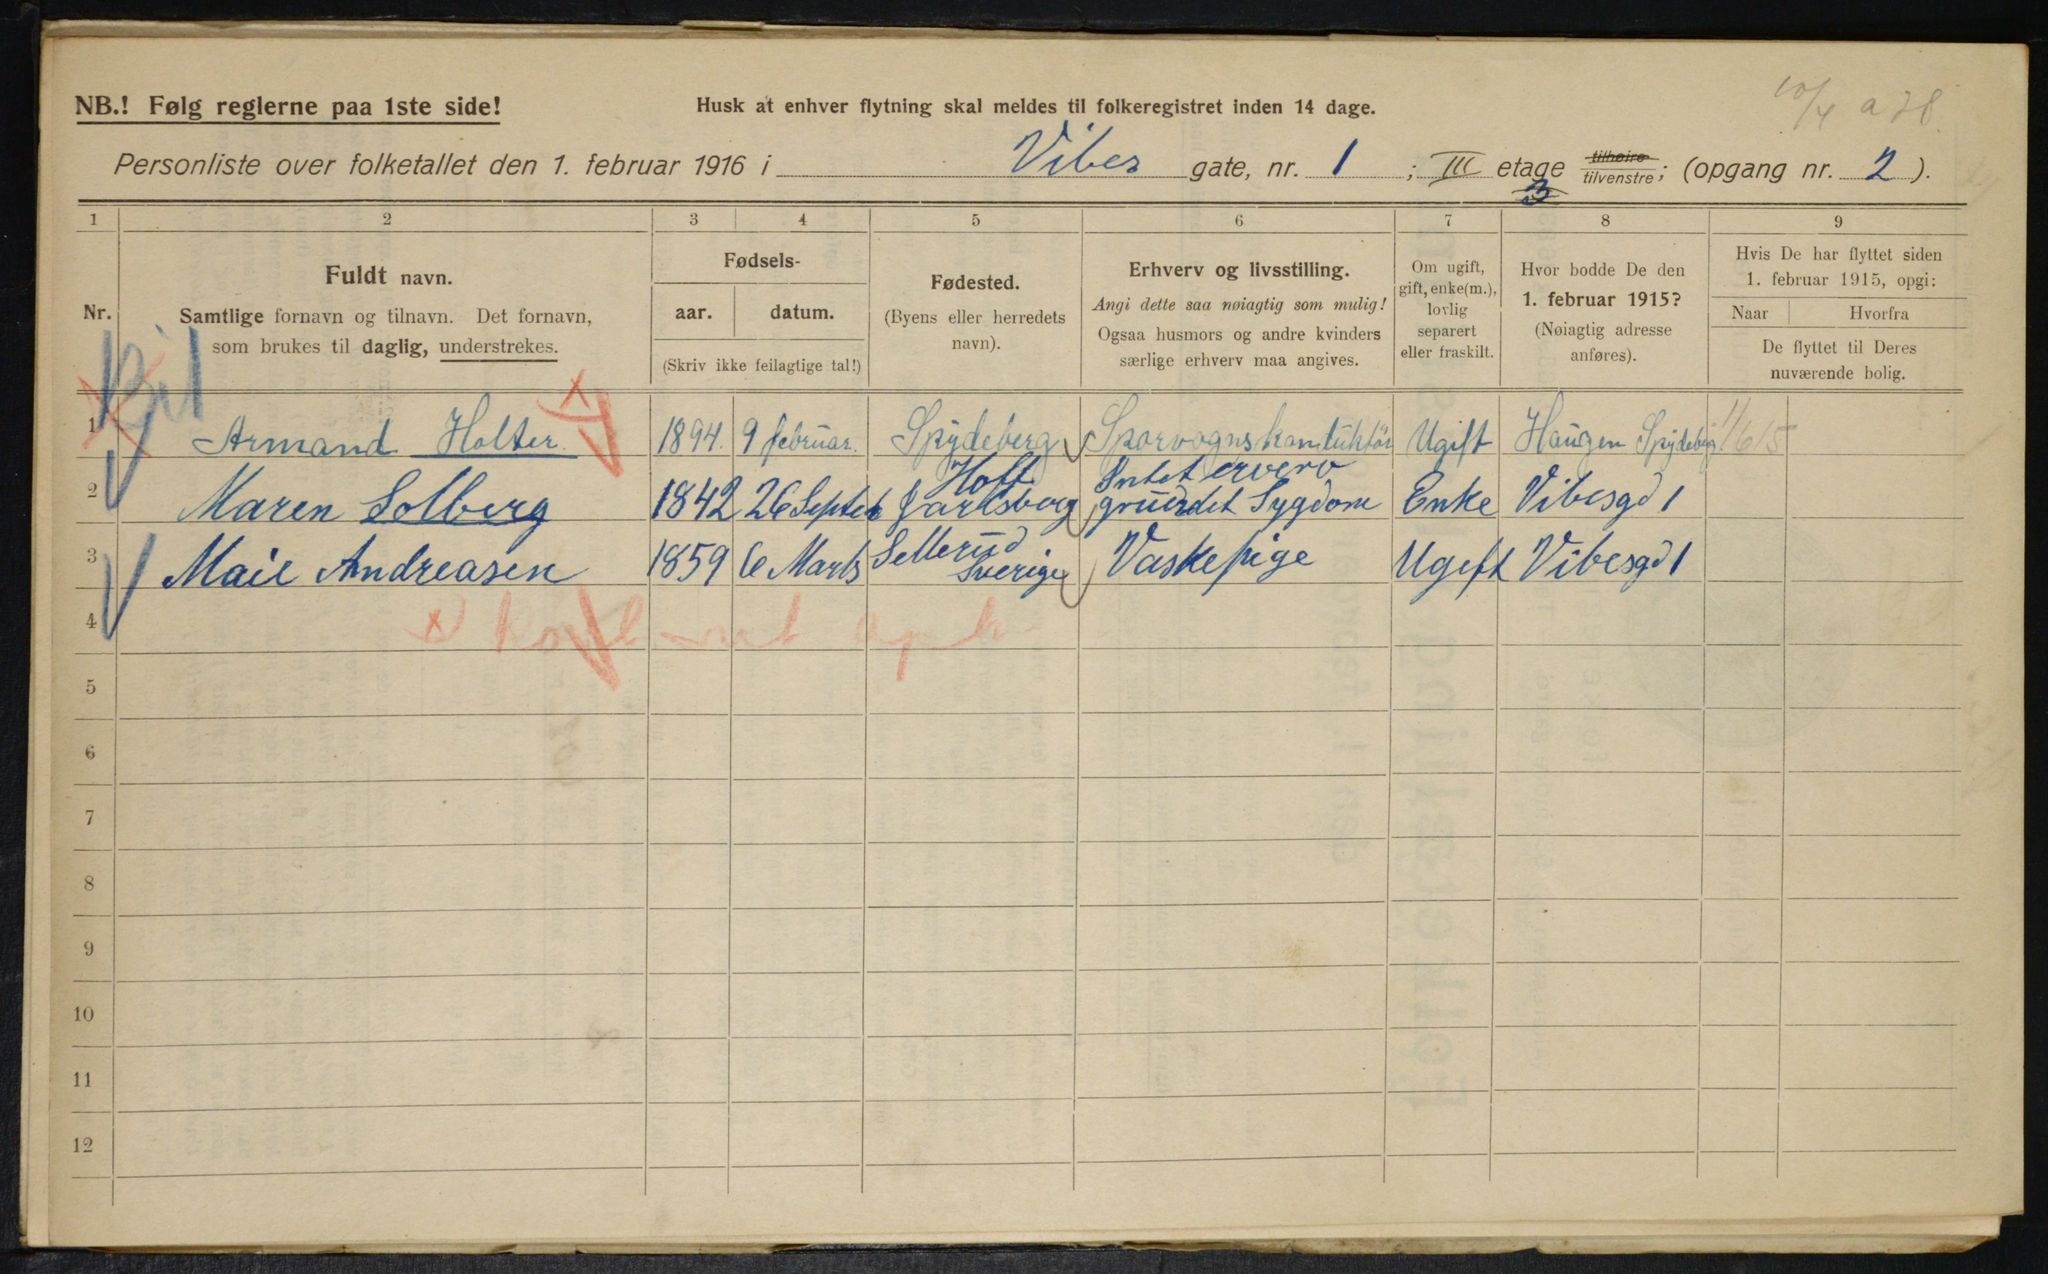 10/4 a 28
NB.! Følg reglerne paa 1ste side!
Husk at enhver flytning skal meldes til folkeregistret inden 14 dage.
Personliste over folketallet den 1. februar 1916 i Vibes gate, nr. 1 ; III etage tilhøire tilvenstre; (opgang nr. 2 ).
3
1 2 3 4 5 6 7 8 9
Nr.
Fuldt navn.
Samtlige fornavn og tilnavn. Det fornavn,
som brukes til daglig, understrekes.
Fødsels-
aar. datum.
(Skriv ikke feilagtige tal!)
Fødested.
(Byens eller herredets
navn).
Erhverv og livsstilling.
Angi dette saa nøiagtig som mulig!
Ogsaa husmors og andre kvinders
særlige erhverv maa angives.
Om ugift,
gift, enke(m.),
lovlig
separert
eller fraskilt.
Hvor bodde De den
1. februar 1915?
(Nøiagtig adresse
anføres).
Hvis De har flyttet siden
1. februar 1915, opgi:
Naar Hvorfra
De flyttet til Deres
nuværende bolig.
Bil
1 Armand Holter. 1894. 9 februar. Spydeberg Sporvogns konduktør Ugift Haugen Spydebrg. 1/6 15
2 Maren Solberg 1842 26 Septeb Hoff Jarlsberg Intet erverv grundet Sygdom Enke Vibesgd 1
3 Maie Andreasen 1859 6 Marts Sellerud Sverige Vaskepige Ugift Vibesgd 1
4
5
6
7
8
9
10
11
12